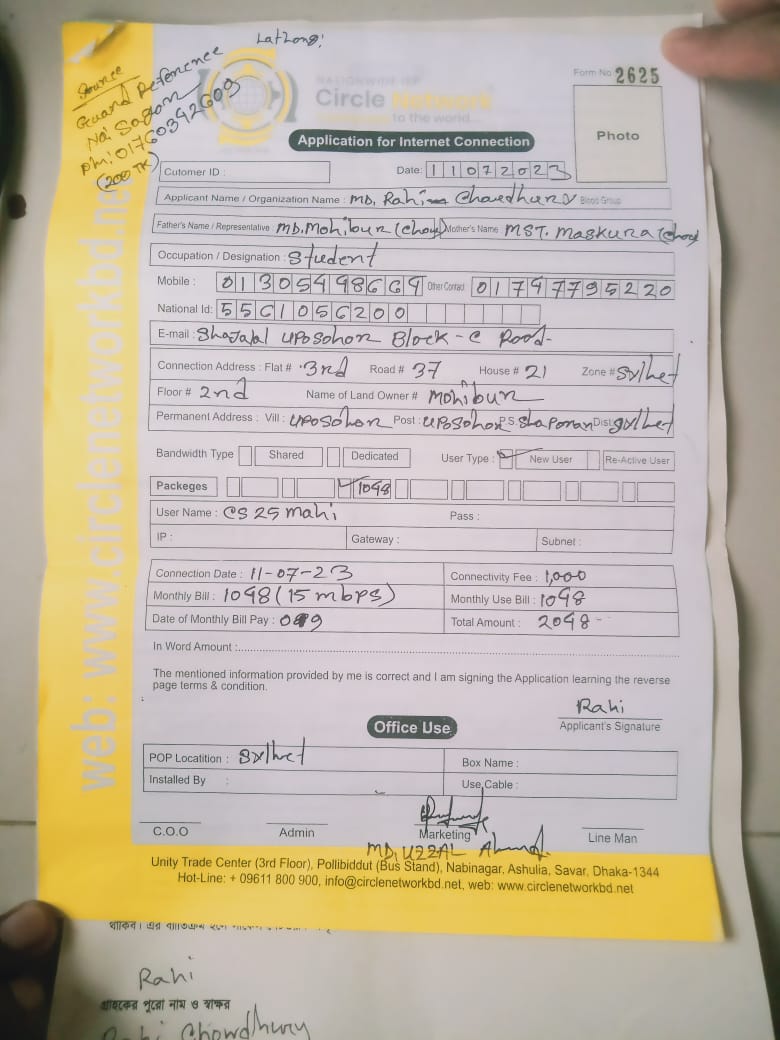 Source
Guard Reference
Na: Sagom
Ph: 01760392609
(200 TK)
NATIONWIDE ISP
Circle Network
to the world...
Form No. 2625
Photo
Application for Internet Connection
Cutomer ID :
Date: 11072023
Applicant Name / Organization Name : MD. Rahi Chowdhury Blood Group
Father's Name / Representative : MD. Mohibun (Chow) Mother's Name MST. Maskura (Chow)
Occupation / Designation : Student
Mobile : 01305498669 Other Contact 01747795220
National Id: 5561056200
E-mail : Shajalal uposohon Block - C Road-
Connection Address : Flat # 3rd Road # 37 House # 21 Zone # Sylhet
Floor # 2nd Name of Land Owner # Mohibun
Permanent Address : Vill : uposohon Post : uposohon P.S. Shaporan Dist: Sylhet
Bandwidth Type Shared Dedicated User Type : New User Re-Active User
Packeges 1048
User Name : CS 25 mahi Pass :
IP : Gateway : Subnet :
Connection Date : 11-07-23 Connectivity Fee : 1,000
Monthly Bill : 1048 (15 mbps) Monthly Use Bill : 1048
Date of Monthly Bill Pay : Total Amount : 2048
In Word Amount :
The mentioned information provided by me is correct and I am signing the Application learning the reverse
page terms & condition.
Rahi
Applicant's Signature
Office Use
POP Locatition : Sylhet Box Name :
Installed By : Use Cable :
C.O.O Admin Marketing Line Man
MD. UZZAL Ahmed
Unity Trade Center (3rd Floor), Pollibiddut (Bus Stand), Nabinagar, Ashulia, Savar, Dhaka-1344
Hot-Line: + 09611 800 900, info@circlenetworkbd.net, web: www.circlenetworkbd.net
web: www.circlenetworkbd.net
Rahi
গ্রাহকের পুরো নাম ও স্বাক্ষর
Rahi Chowdhury